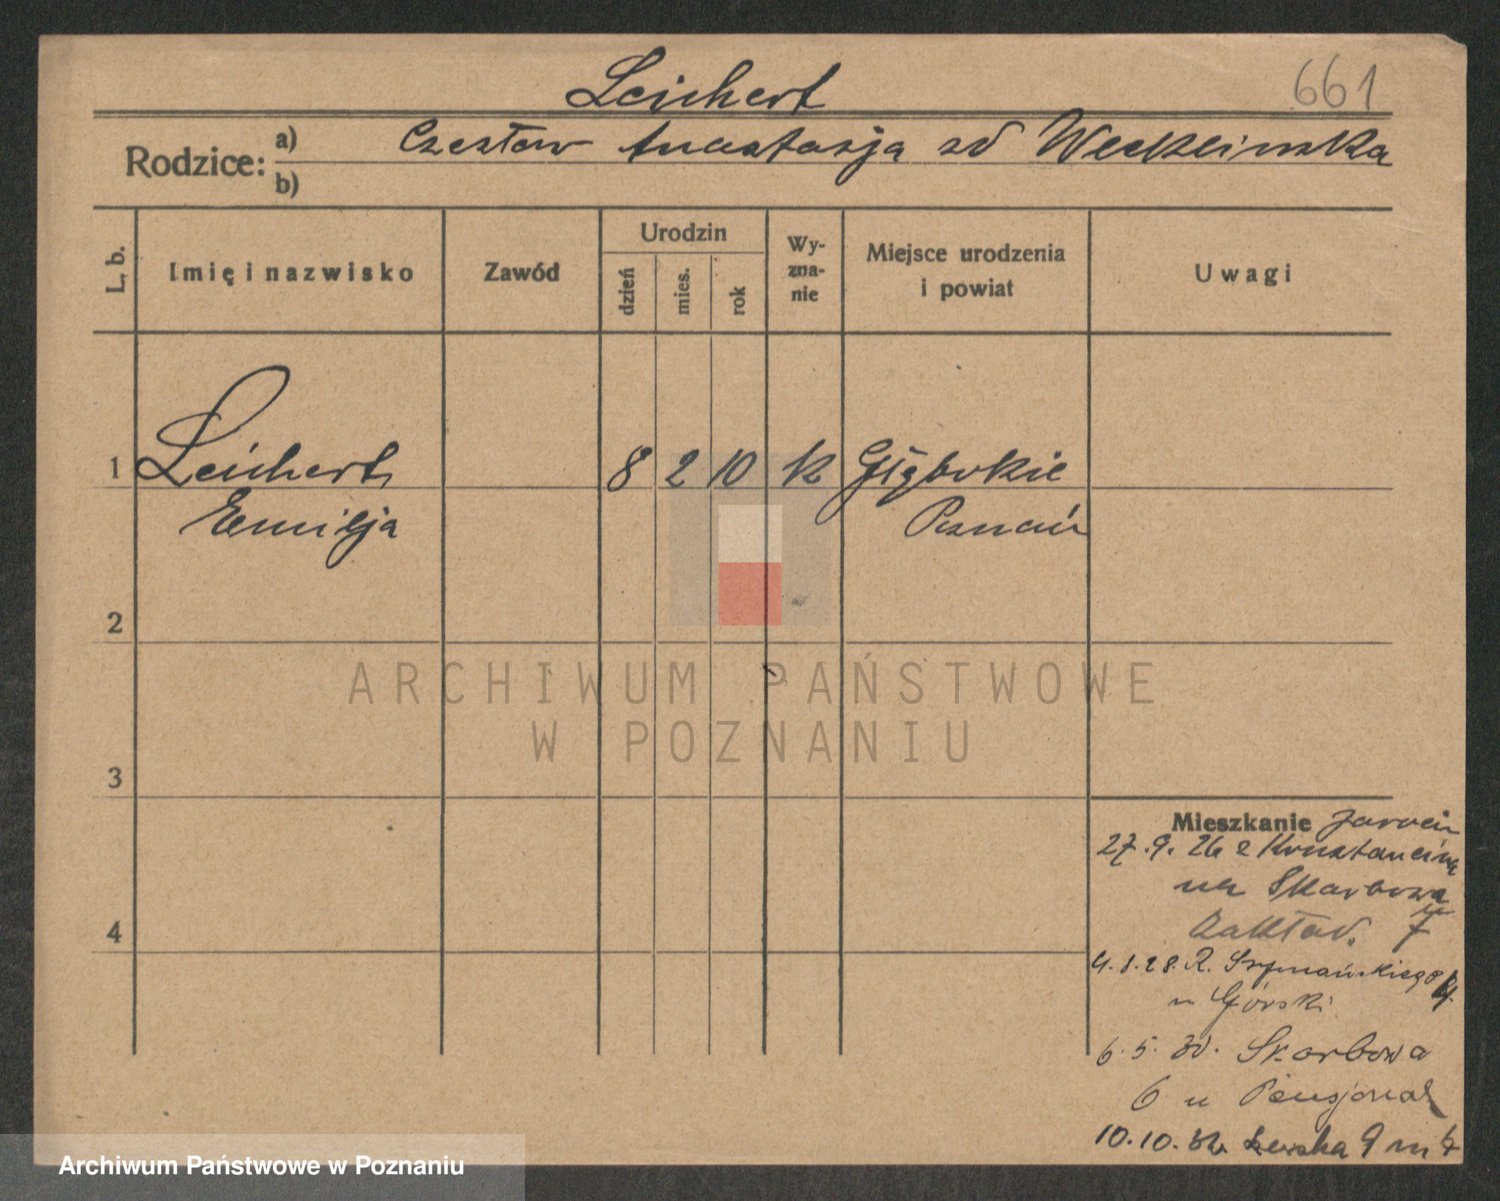 Leichert
661
Rodzice: a) Czesław Anastazja zd Wecklinska
b)
L. b.
Imię i nazwisko
Zawód
Urodzin
dzień
mies.
rok
Wy-
zna-
nie
Miejsce urodzenia
i powiat
Uwagi
1 Leichert 8 2 10 k Głębokie
Emilja Poznań
2
ARCHIWUM PAŃSTWOWE
W POZNANIU
3
Mieszkanie Jarocin
27.9.26 z
na Skarbowa
Zakład. 7
4
4.1.28. R. Szymańskiego
u Górski
6.5.30. Skarbowa
6 u Pensjonat
10.10.32 9 m
Archiwum Państwowe w Poznaniu